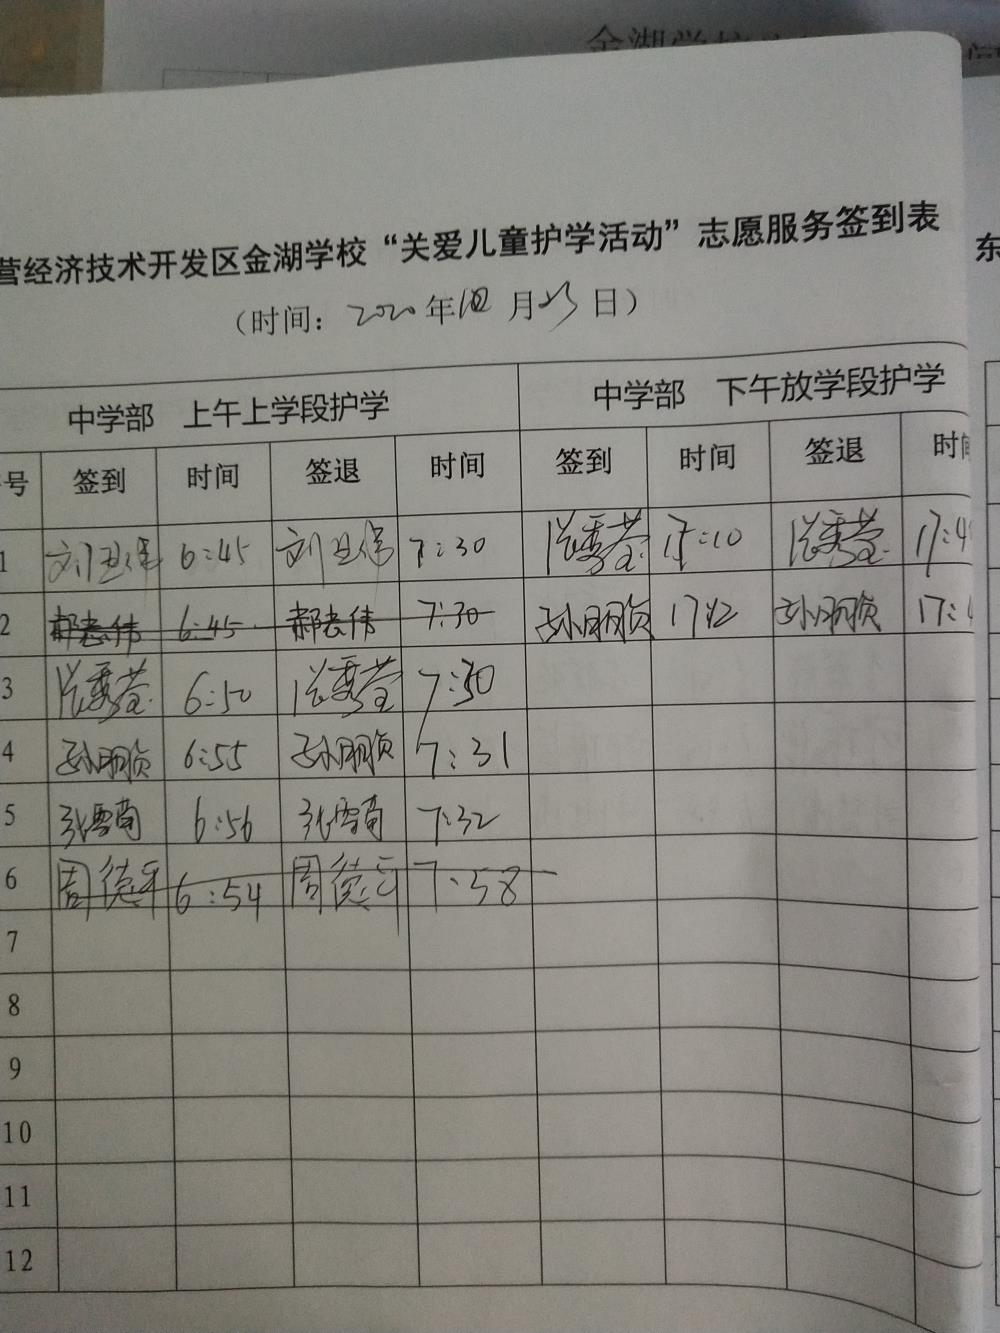 金湖学校
营经济技术开发区金湖学校“关爱儿童护学活动”志愿服务签到表
东
（时间：2020年10月23日）
中学部 上午上学段护学 中学部 下午放学段护学
号 签到 时间 签退 时间 签到 时间 签退 时间
1 刘卫伟 6:45 刘卫伟 7:30 17:10 17:4
2 郝志伟 6:45 郝志伟 7:30 孙明贞 17:12 孙明贞 17:
3 6:50 7:30
4 孙明贞 6:55 孙明贞 7:31
5 张雪菊 6:56 张雪菊 7:32
6 周德 6:54 周德 7:58
7
8
9
10
11
12